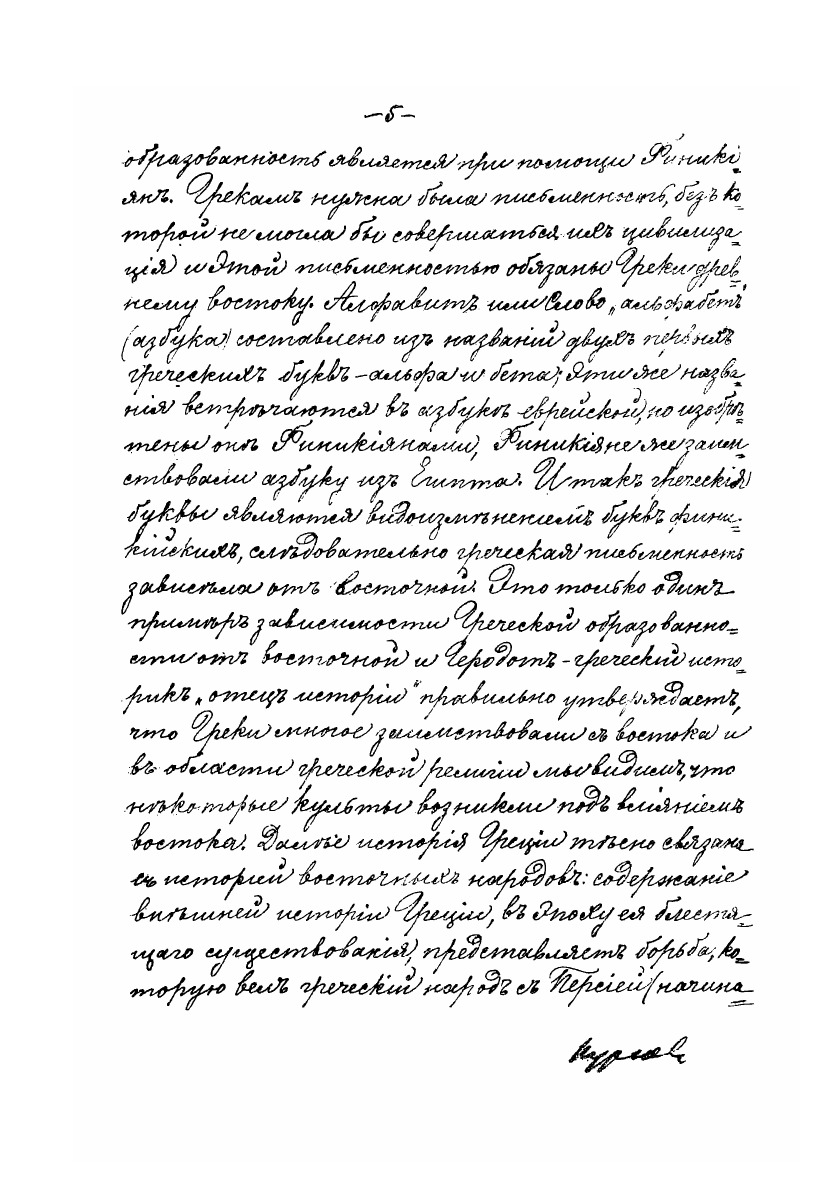 —5—
образованность является при помощи Финикі
янъ. Грекамъ нужна была письменность, безъ ко=
торой не могла бы совершаться ихъ цивилиза=
ція и этой письменностью обязаны Греки древ=
нему востоку. Алфавитъ или слово „альфабетъ“
(азбука) составлено изъ названій двухъ первыхъ
греческихъ буквъ – альфа и бета; эти же назва=
нія встрѣчаются въ азбукѣ еврейской, но изобрѣ=
тены онѣ Финикіянами, Финикіяне же заим=
ствовали азбуку изъ Египта. И такъ греческія
буквы являются видоизмѣненіемъ буквъ фини=
кійскихъ, слѣдовательно греческая письменность
зависѣла отъ восточной. Это только одинъ
примѣръ зависимости Греческой образованно=
сти отъ восточной и Геродотъ – греческій исто=
рикъ „отецъ исторіи“ правильно утверждаетъ,
что Греки многое заимствовали съ востока и
въ области греческой религіи мы видимъ, что
нѣкоторые культы возникли подъ вліяніемъ
востока. Далѣе исторія Греціи тѣсно связана
съ исторіей восточныхъ народовъ: содержаніе
внѣшней исторіи Греціи, въ эпоху ея блестя=
щаго существованія, представляетъ борьба, ко=
торую велъ греческій народъ съ Персіей (начина=